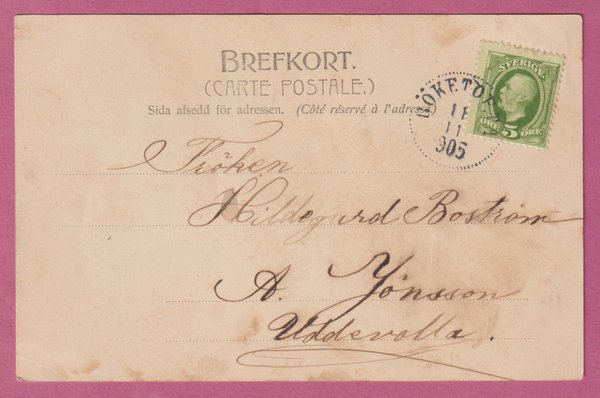 BREFKORT.
(CARTE POSTALE.)
Sida afsedd för adressen. (Côté réservé à l'adresse
SVERIGE
ÖRE 5 ÖRE
11
905
Fröken
Hildegard Boström
A. Jönsson
Uddevalla.